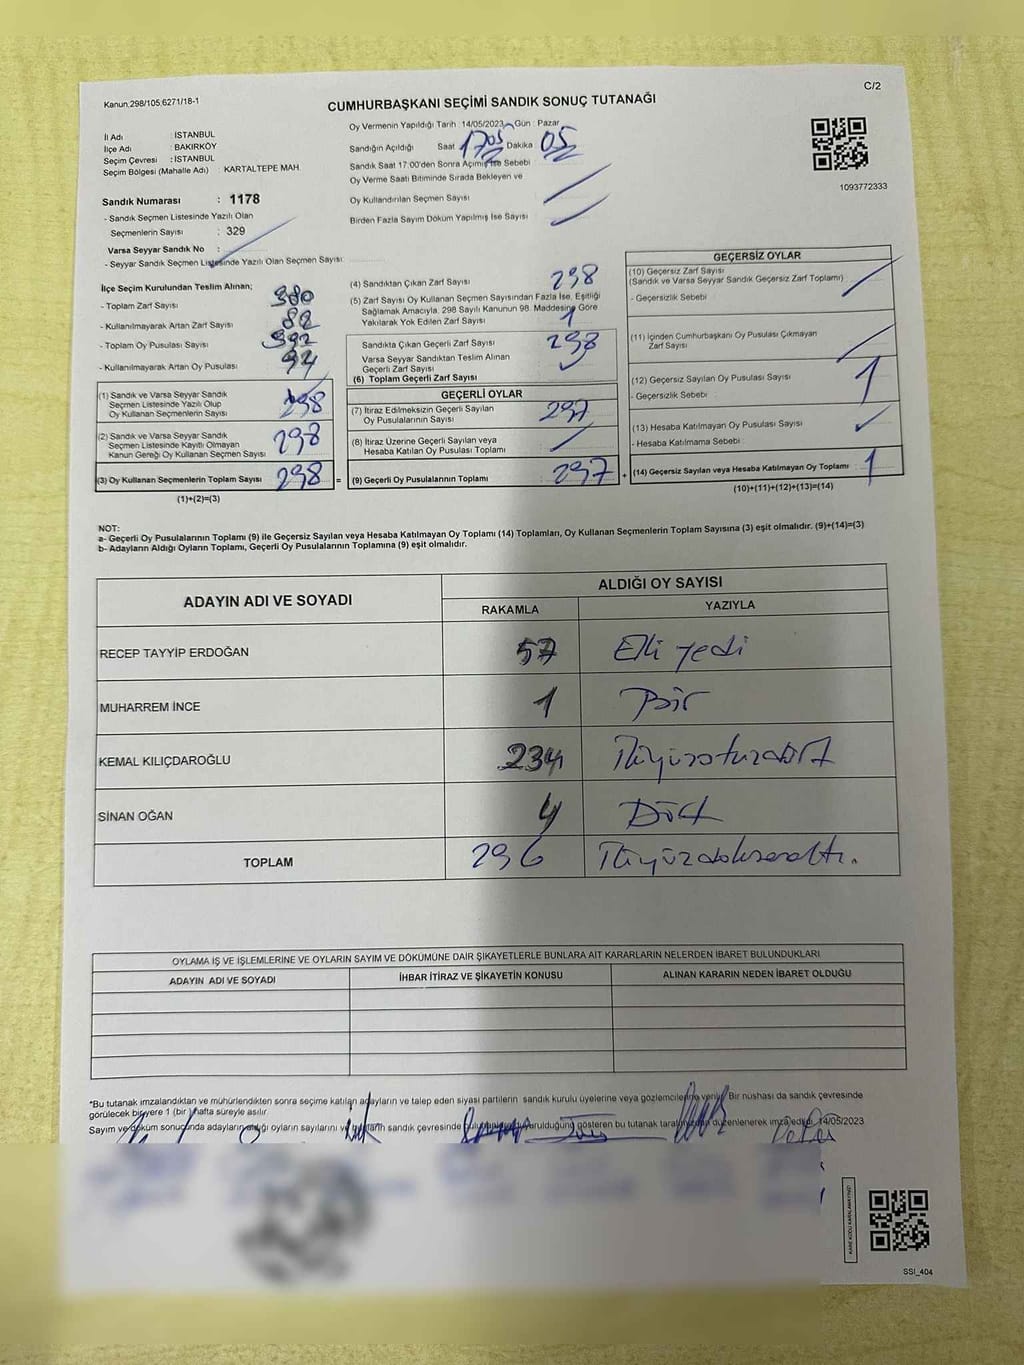 Kanun.298/105.6271/18-1
C/2
CUMHURBAŞKANI SEÇİMİ SANDIK SONUÇ TUTANAĞI
İl Adı : İSTANBUL
İlçe Adı : BAKIRKÖY
Seçim Çevresi : İSTANBUL
Seçim Bölgesi (Mahalle Adı) : KARTALTEPE MAH
Sandık Numarası : 1178
- Sandık Seçmen Listesinde Yazılı Olan
Seçmenlerin Sayısı : 329
Varsa Seyyar Sandık No :
- Seyyar Sandık Seçmen Listesinde Yazılı Olan Seçmen Sayısı:
Oy Vermenin Yapıldığı Tarih : 14/05/2023 Gün : Pazar
Sandığın Açıldığı Saat 1705 Dakika 05
Sandık Saat 17:00'den Sonra Açımış İse Sebebi
Oy Verme Saati Bitiminde Sırada Bekleyen ve
Oy Kullandırılan Seçmen Sayısı
Birden Fazla Sayım Döküm Yapılmış İse Sayısı
1093772333
İlçe Seçim Kurulundan Teslim Alınan;
- Toplam Zarf Sayısı 380
- Kullanılmayarak Artan Zarf Sayısı 82
- Toplam Oy Pusulası Sayısı 392
- Kullanılmayarak Artan Oy Pusulası 94
(1) Sandık ve Varsa Seyyar Sandık
Seçmen Listesinde Yazılı Olup
Oy Kullanan Seçmenlerin Sayısı 298
(2) Sandık ve Varsa Seyyar Sandık
Seçmen Listesinde Kayıtlı Olmayan
Kanun Gereği Oy Kullanan Seçmen Sayısı 298
(3) Oy Kullanan Seçmenlerin Toplam Sayısı 298 =
(1)+(2)=(3)
(4) Sandıktan Çıkan Zarf Sayısı 298
(5) Zarf Sayısı Oy Kullanan Seçmen Sayısından Fazla İse, Eşitliği
Sağlamak Amacıyla, 298 Sayılı Kanunun 98. Maddesine Göre
Yakılarak Yok Edilen Zarf Sayısı 1
Sandıkta Çıkan Geçerli Zarf Sayısı 298
Varsa Seyyar Sandıktan Teslim Alınan
Geçerli Zarf Sayısı
(6) Toplam Geçerli Zarf Sayısı
GEÇERLİ OYLAR
(7) İtiraz Edilmeksizin Geçerli Sayılan
Oy Pusulalarının Sayısı 297
(8) İtiraz Üzerine Geçerli Sayılan veya
Hesaba Katılan Oy Pusulası Toplamı
(9) Geçerli Oy Pusulalarının Toplamı 297 +
GEÇERSİZ OYLAR
(10) Geçersiz Zarf Sayısı
(Sandık ve Varsa Seyyar Sandık Geçersiz Zarf Toplamı)
- Geçersizlik Sebebi
(11) İçinden Cumhurbaşkanı Oy Pusulası Çıkmayan
Zarf Sayısı
(12) Geçersiz Sayılan Oy Pusulası Sayısı 1
- Geçersizlik Sebebi
(13) Hesaba Katılmayan Oy Pusulası Sayısı
- Hesaba Katılmama Sebebi
(14) Geçersiz Sayılan veya Hesaba Katılmayan Oy Toplamı 1
(10)+(11)+(12)+(13)=(14)
NOT:
a- Geçerli Oy Pusulalarının Toplamı (9) ile Geçersiz Sayılan veya Hesaba Katılmayan Oy Toplamı (14) Toplamları, Oy Kullanan Seçmenlerin Toplam Sayısına (3) eşit olmalıdır. (9)+(14)=(3)
b- Adayların Aldığı Oyların Toplamı, Geçerli Oy Pusulalarının Toplamına (9) eşit olmalıdır.
ADAYIN ADI VE SOYADI
ALDIĞI OY SAYISI
RAKAMLA YAZIYLA
RECEP TAYYİP ERDOĞAN 57 Elli yedi
MUHARREM İNCE 1 Bir
KEMAL KILIÇDAROĞLU 234 İkiyüzotuzdört
SİNAN OĞAN 4 Dört
TOPLAM 296 İkiyüzdoksanaltı.
OYLAMA İŞ VE İŞLEMLERİNE VE OYLARIN SAYIM VE DÖKÜMÜNE DAİR ŞİKAYETLERLE BUNLARA AİT KARARLARIN NELERDEN İBARET BULUNDUKLARI
ADAYIN ADI VE SOYADI İHBAR İTİRAZ VE ŞİKAYETİN KONUSU ALINAN KARARIN NEDEN İBARET OLDUĞU
*Bu tutanak imzalandıktan ve mühürlendikten sonra seçime katılan adayların ve talep eden siyasi partilerin sandık kurulu üyelerine veya gözlemcilerine verilir. Bir nüshası da sandık çevresinde
görülecek bir yere 1 (bir) hafta süreyle asılır.
Sayım ve döküm sonucunda adayların aldığı oyların sayılarını ve sandık çevresinde duyurulduğunu gösteren bu tutanak düzenlenerek imza edildi. 14/05/2023
KARE KODU KARALAMAYINIZ!
SSI_404